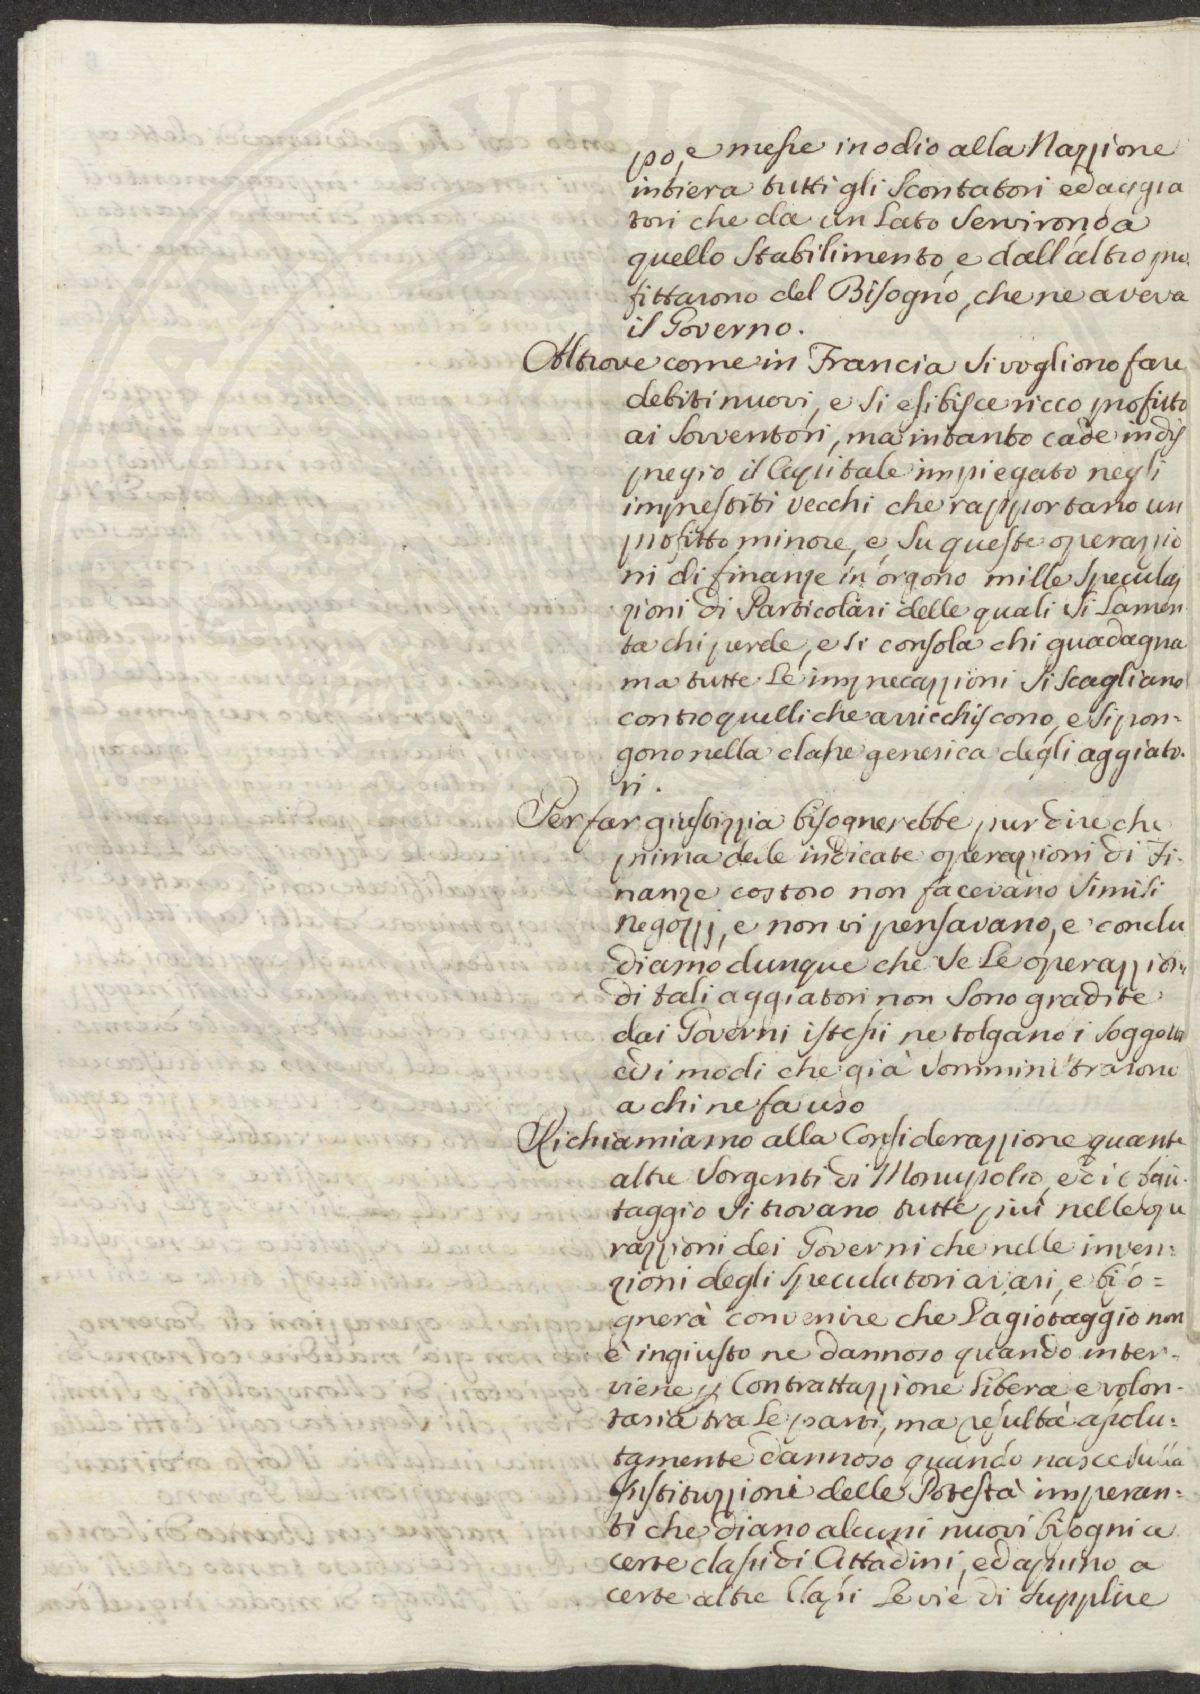 po, e messe in odio alla Nazzione
intiera tutti gli Scontatori ed aggia
tori che da un Lato Servirono a
quello Stabilimento, e dall'altro pro
fittarono del Bisogno, che ne aveva
il Governo.
Altrove come in Francia si vogliono fare
debiti nuovi, e si esibisce ricco profitto
ai Sovventori, ma intanto cade in dis
pregio il Capitale impiegato negli
imprestiti vecchi che rapportano un
profitto minore, e su queste operazzio
ni di finanze insorgono mille Specula
zioni di Particolari delle quali si Lamen
ta chi perde, e si consola chi guadagna
ma tutte Le imprecazzioni si scagliano
contro quelli che arricchiscono, e si pon-
gono nella classe generica degli aggiato-
ri.
Per far giustizzia bisognerebbe pur dire che
prima delle indicate operazzioni di Fi-
nanze costoro non facevano Simili
negozzj, e non vi pensavano, e conclu
diamo dunque che se Le operazzioni
di tali aggiatori non sono gradite
dai Governi istessi ne tolgano i soggetti
ed i modi che già somministrarono
a chi ne fa uso
Richiamiamo alla Considerazzione quante
altre Sorgenti di Monopolio, ed
taggio si trovano tutte più nelle ope
razzioni dei Governi che nelle inven=
zioni degli Speculatori avari, e biso=
gnerà convenire che L'agiotaggio non
è ingiusto ne dannoso quando inter-
viene p Contrattazzione Libera e volon-
taria tra Le parti, ma resulta assolu=
tamente dannoso quando nasce dalla
Instituzzione delle Potestà imperan=
ti che diano alcuni nuovi bisogni a
certe classi di Cittadini, ed aprino a
certe altre Classi Le vie di supplire